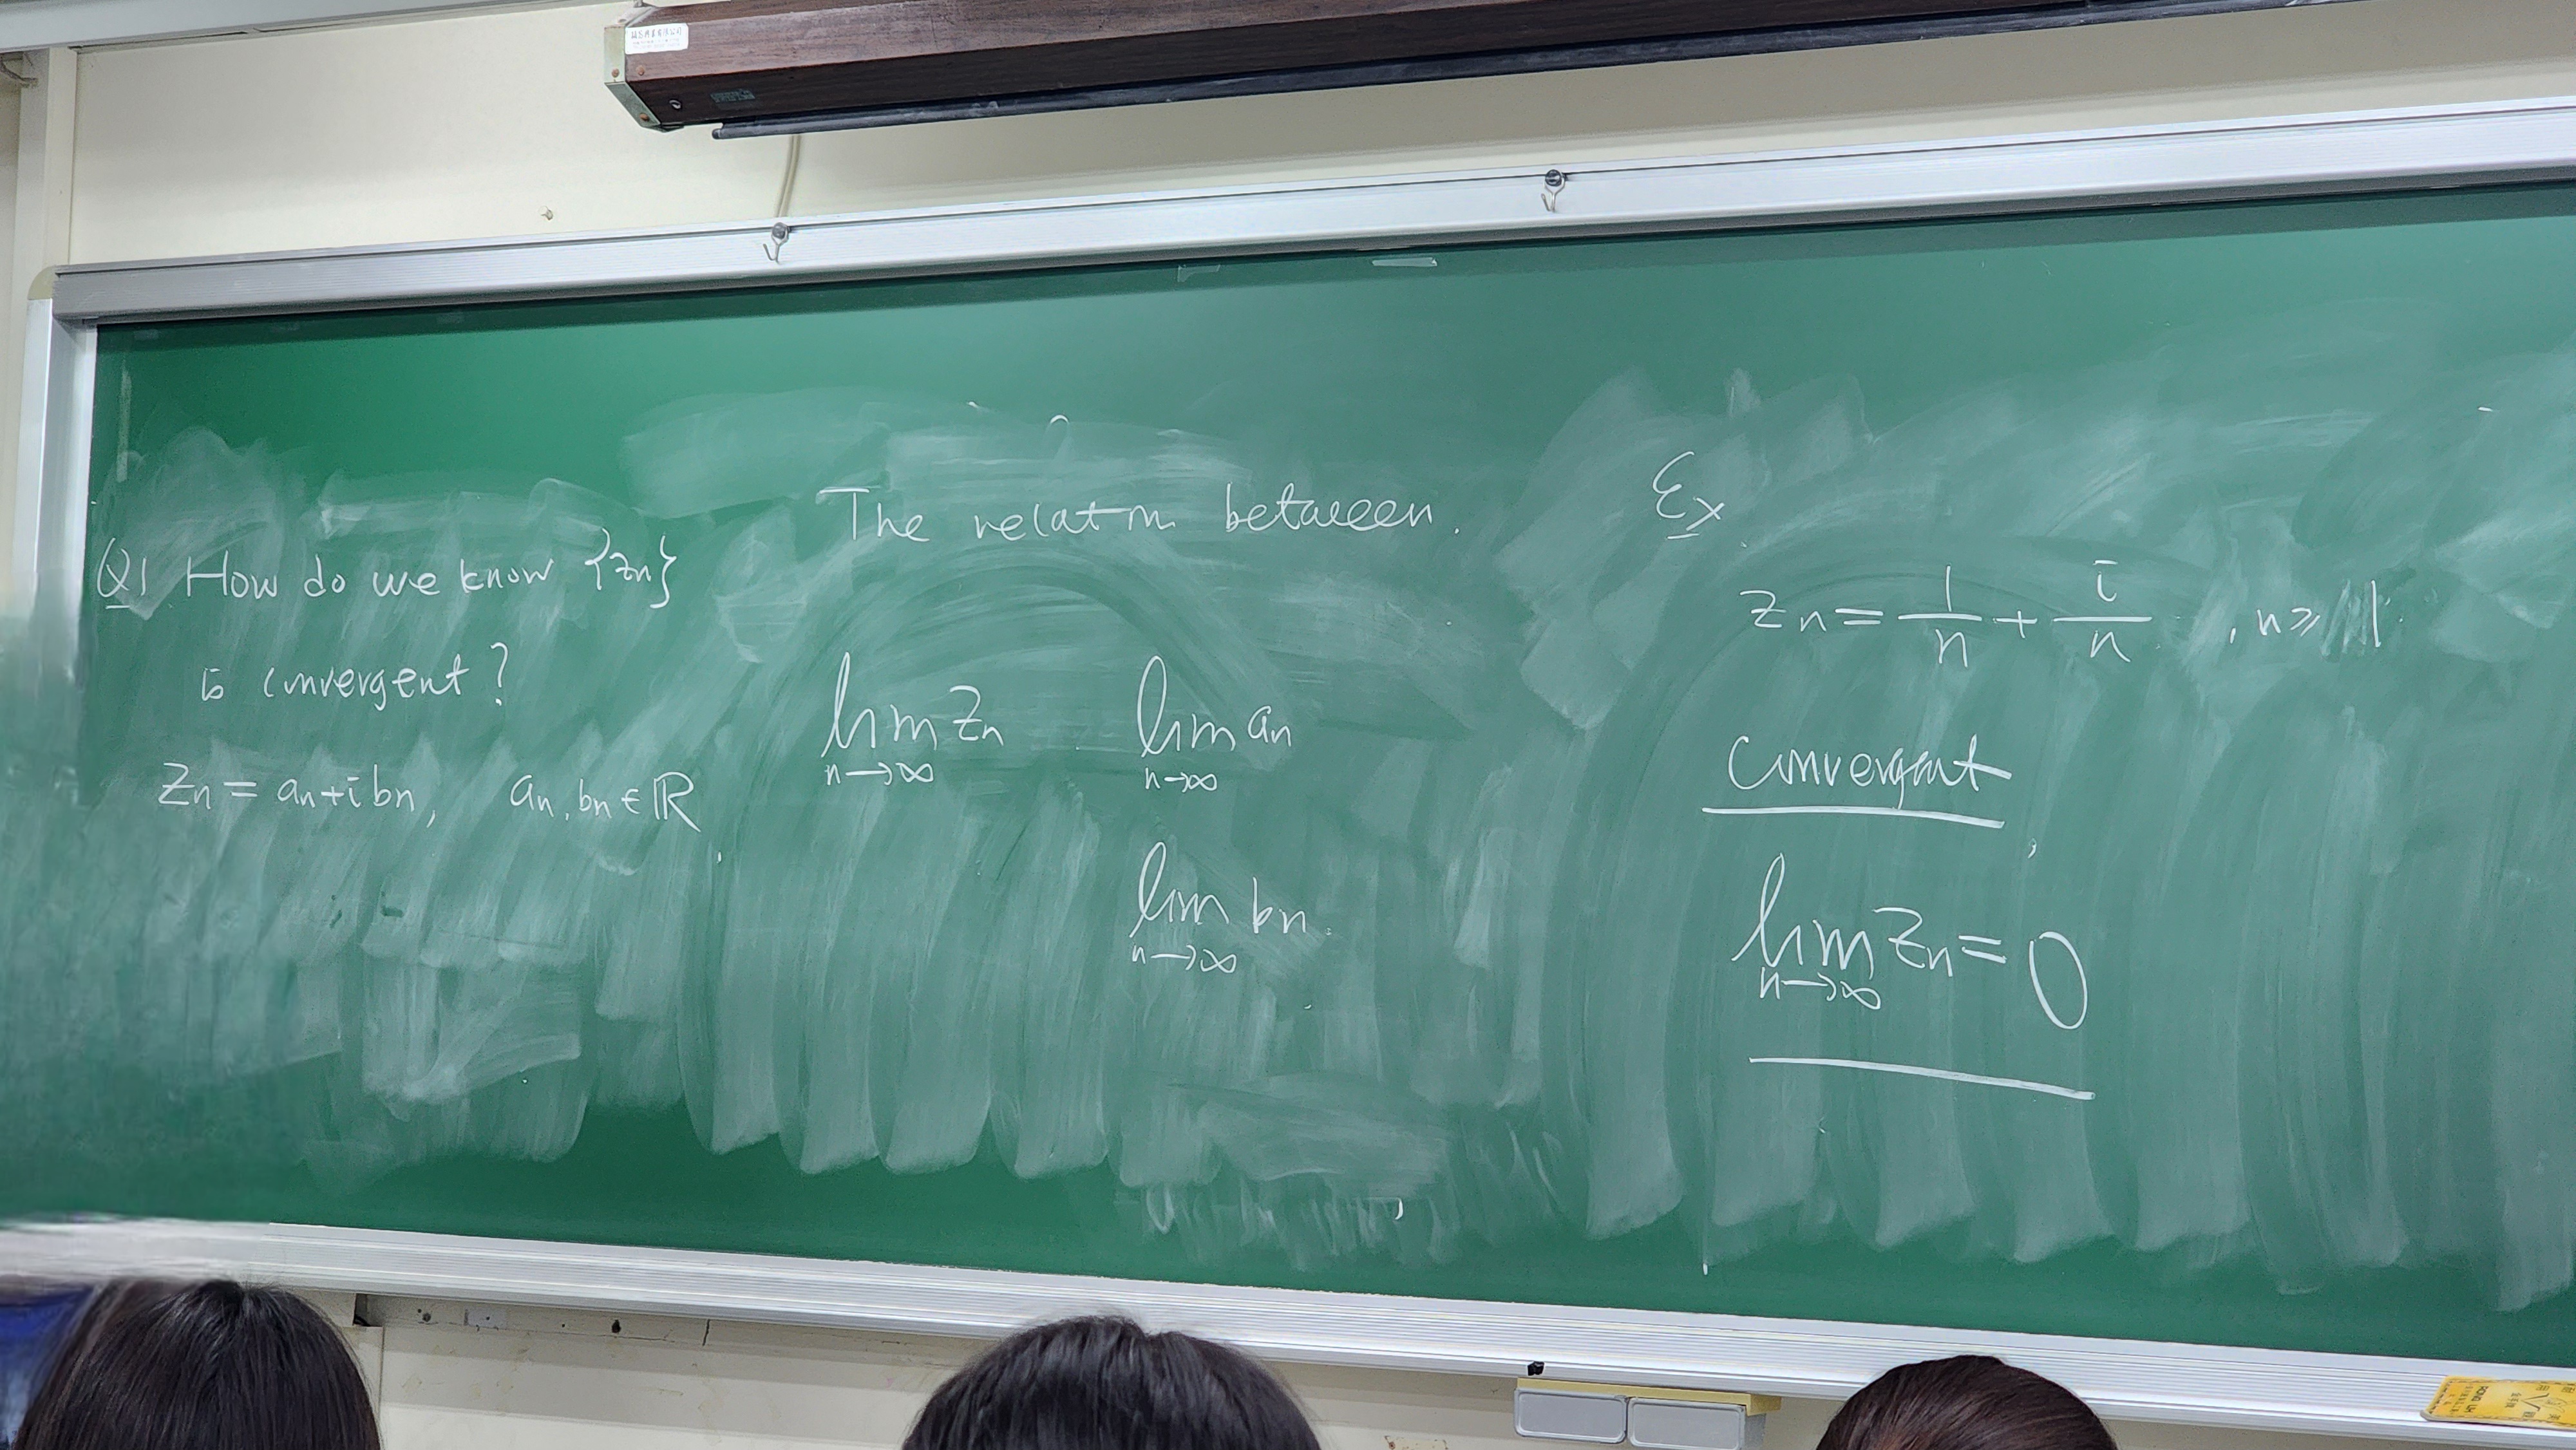 Q1 How do we know {zn}
is convergent?
zn = an + i bn, an, bn ∈ ℝ
The relation between.
lim zn
n→∞
lim an
n→∞
lim bn.
n→∞
Ex
zn = 1/n + i/n, n ≥ 1.
Convergent
lim zn = 0
n→∞